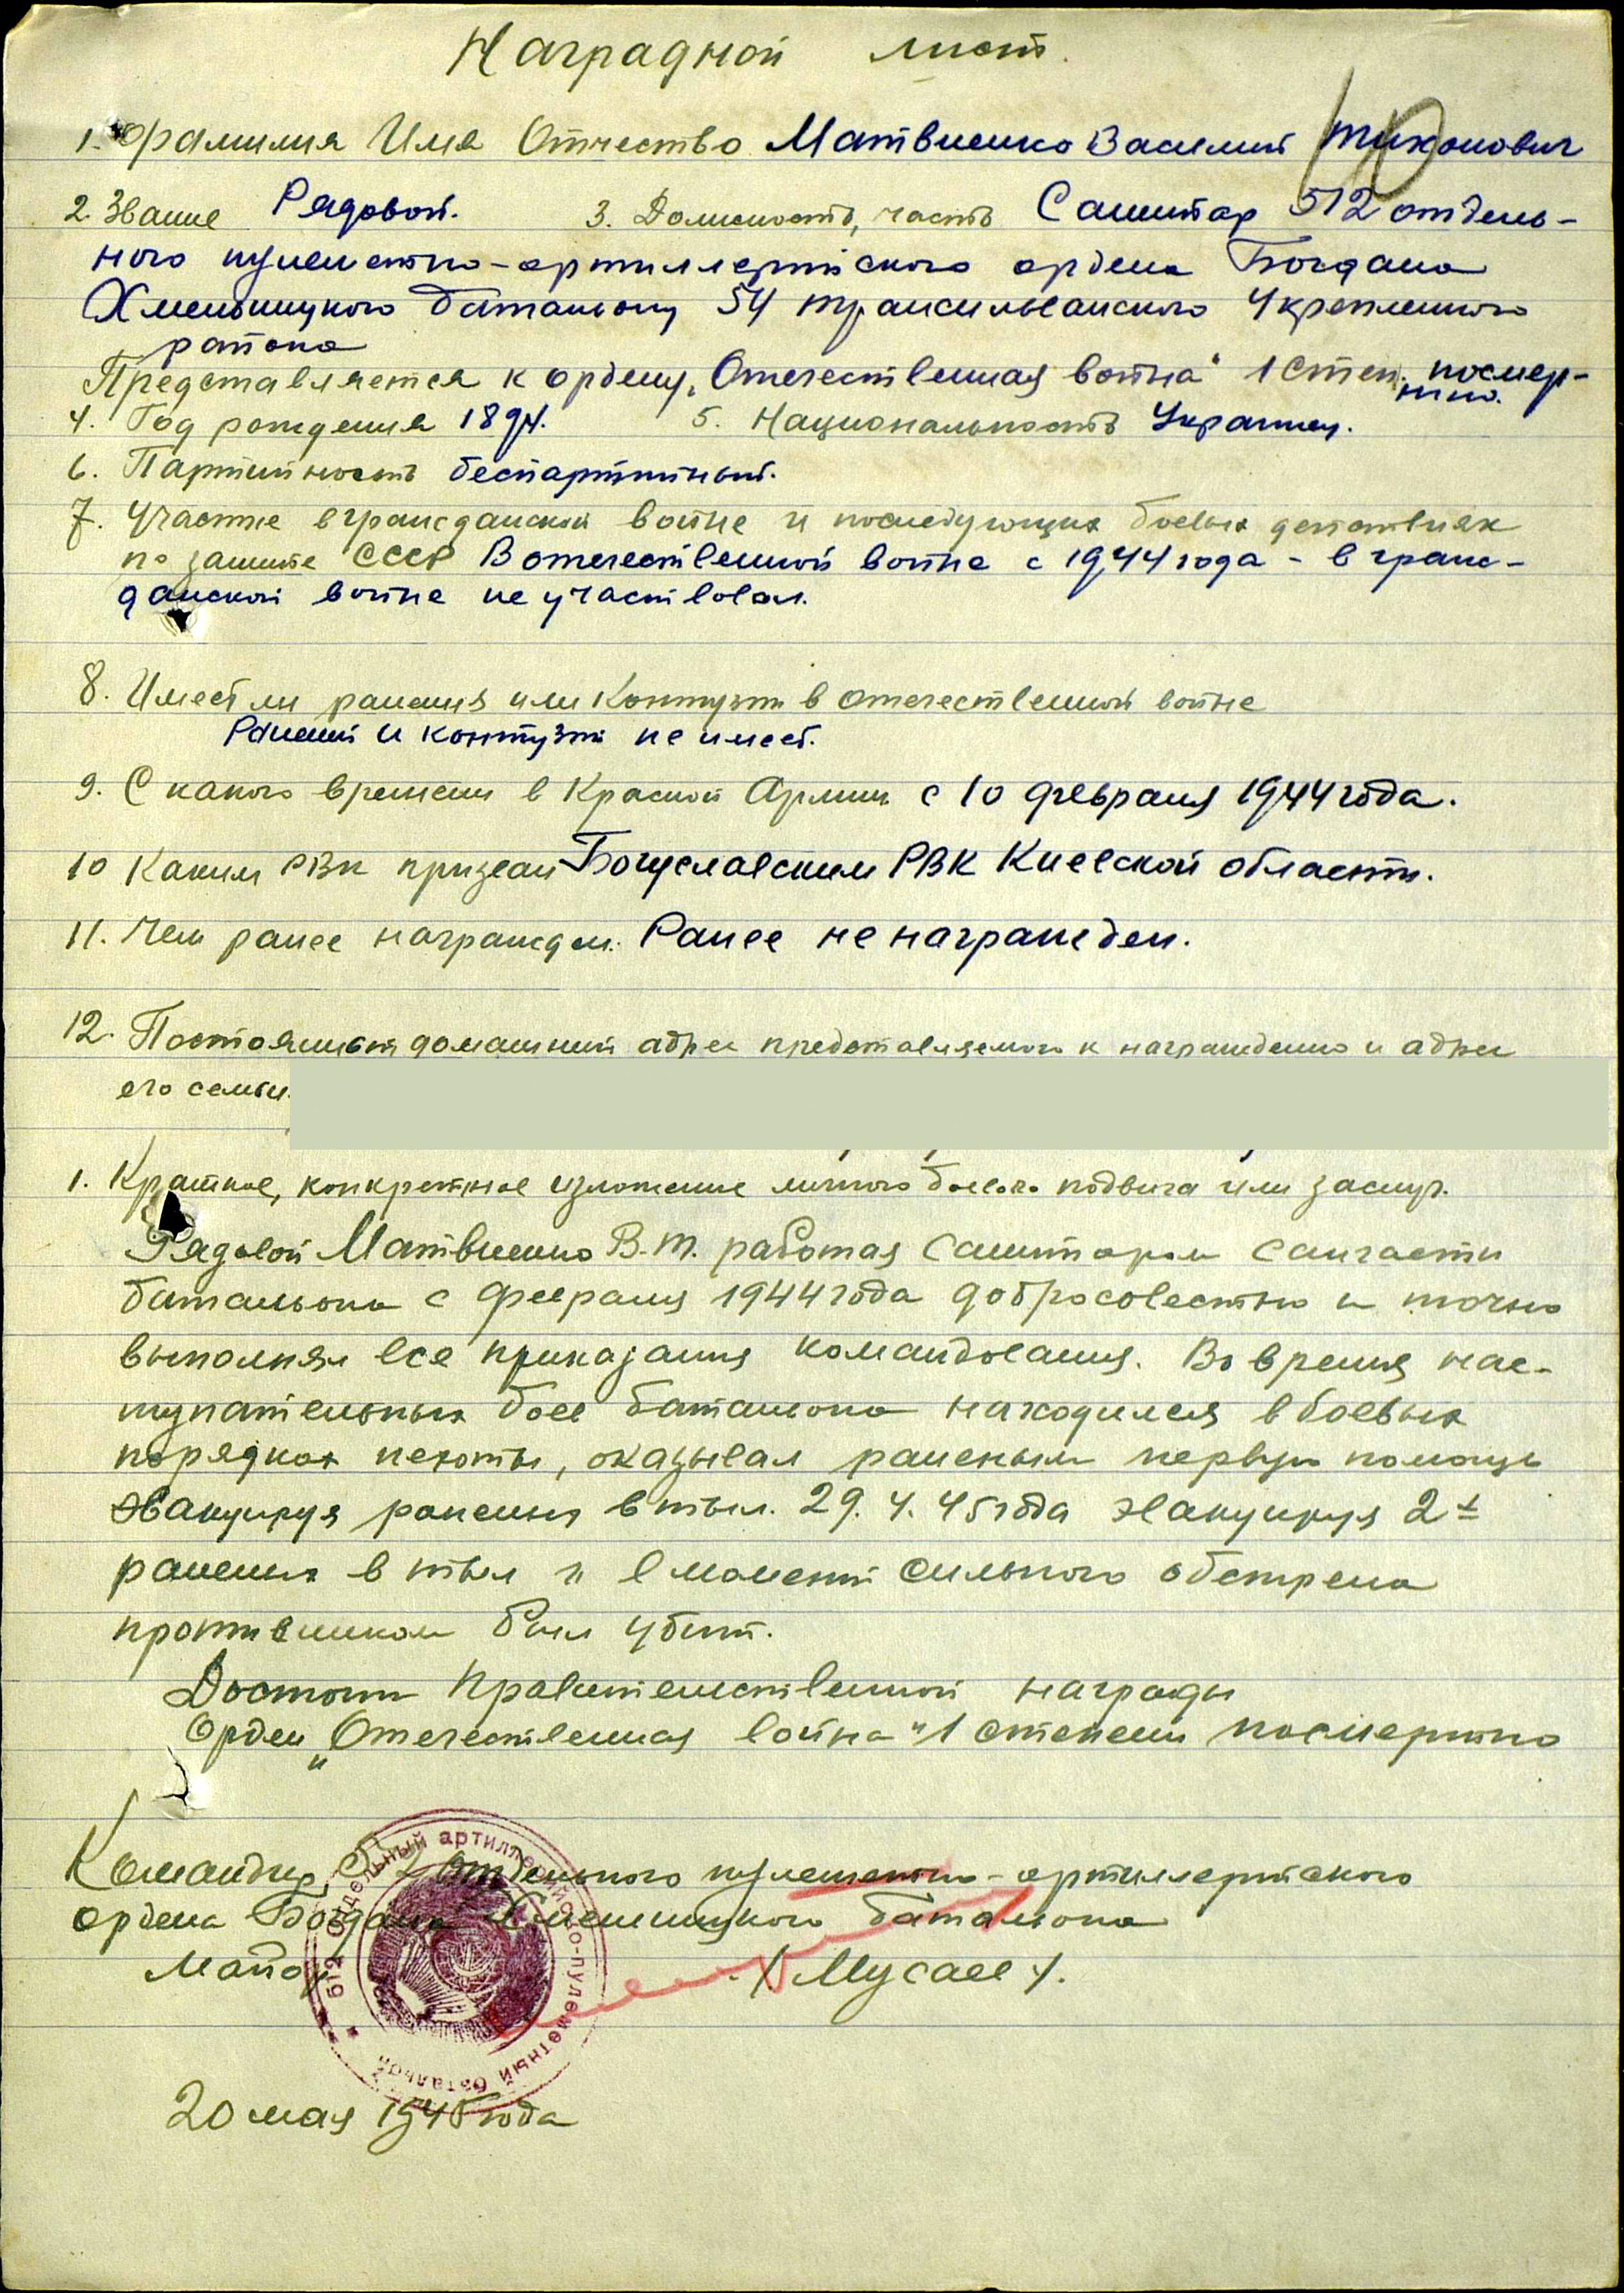 Наградной лист.
1. Фамилия Имя Отчество Матвиенко Василий Тихонович
2. Звание Рядовой. 3. Должность, часть Санитар 512 отдель-
ного пулеметно-артиллерийского ордена Богдана
Хмельницкого батальону 54 трансильванского Укрепленного
района
Представляется к ордену „Отечественная война" 1 степ. посмер-
тно.
4. Год рождения 1894. 5. Национальность Украинец.
6. Партийность беспартийный.
7. Участие в гражданской войне и последующих боевых действиях
по защите СССР В отечественной войне с 1944 года - в граж-
данской войне не участвовал.
8. Имеет ли ранения или контузии в отечественной войне
Ранений и контузий не имеет.
9. С какого времени в Красной Армии с 10 февраля 1944 года.
10 Каким РВК призван Богуславским РВК Киевской области.
11. Чем ранее награжден. Ранее не награжден.
12. Постоянный домашний адрес представляемого к награждению и адрес
его семьи.
1. Краткое, конкретное изложение личного боевого подвига или заслуг.
Рядовой Матвиенко В.Т. работая санитаром санчасти
батальона с февраля 1944 года добросовестно и точно
выполнял все приказания командования. Во время нас-
тупательных боев батальона находился в боевых
порядках пехоты, оказывал раненым первую помощь
эвакуируя раненых в тыл. 29.4.45 года эвакуируя 2х
раненых в тыл и в момент сильного обстрела
противником был убит.
Достоин Правительственной награды
Орден „Отечественная война" 1 степени посмертно
Командир 512 Отдельного пулеметно-артиллерийского
ордена Богдана Хмельницкого батальона
майор (Мусаев).
512 отдельный артиллерийско-пулеметный батальон
20 мая 1945 года